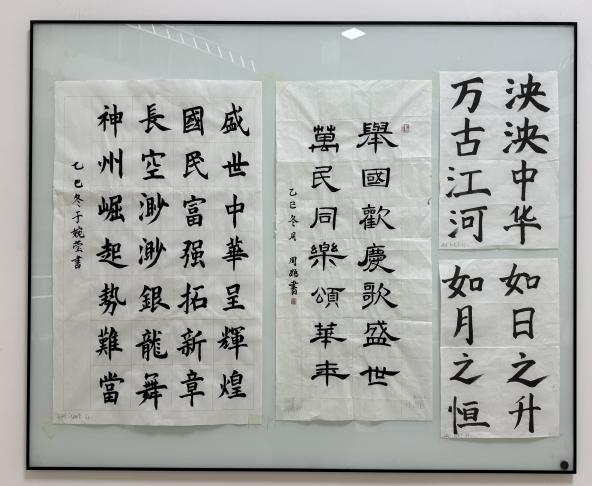 泱泱中华
万古江河
如日之升
如月之恒
舉國歡慶歌盛世
萬民同樂頌華年
乙巳冬月 周 書
盛世中華呈輝煌
國民富强拓新章
長空渺渺銀龍舞
神州崛起勢難當
乙巳冬于婉莹書